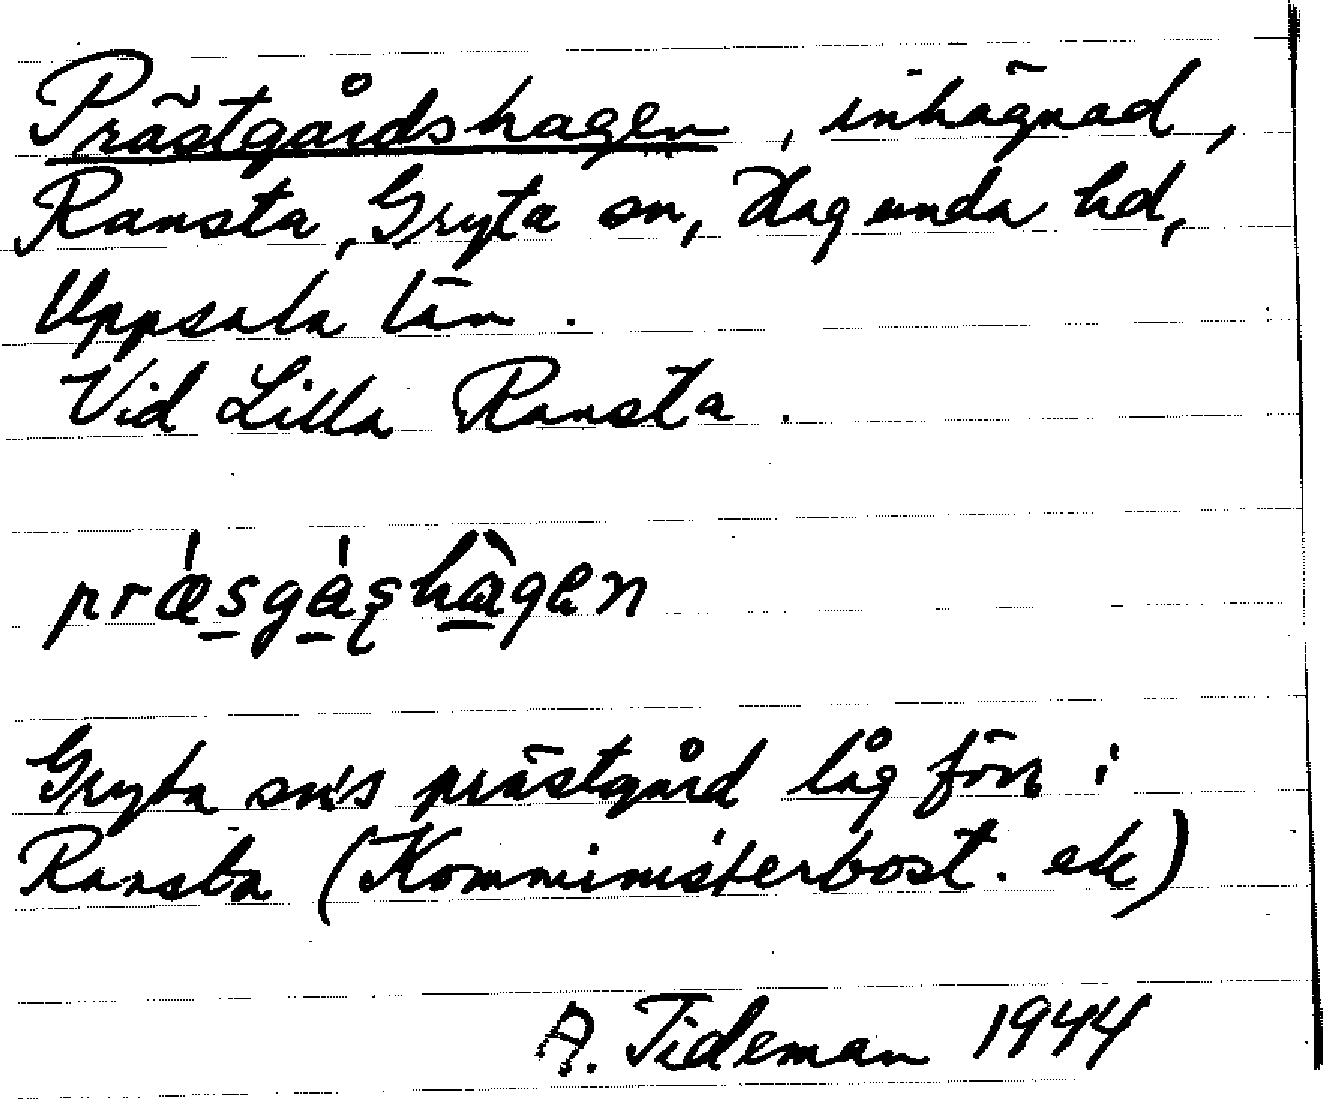 Prästgårdshagen, inhägnad,
Ransta, Gryta sn, Hagunda hd,
Uppsala län.
Vid Lilla Ransta.
præ̀sgàṣhâgen
Gryta sn:s prästgård låg förr i
Ransta (Komministerbost. etc)
A. Tideman 1944